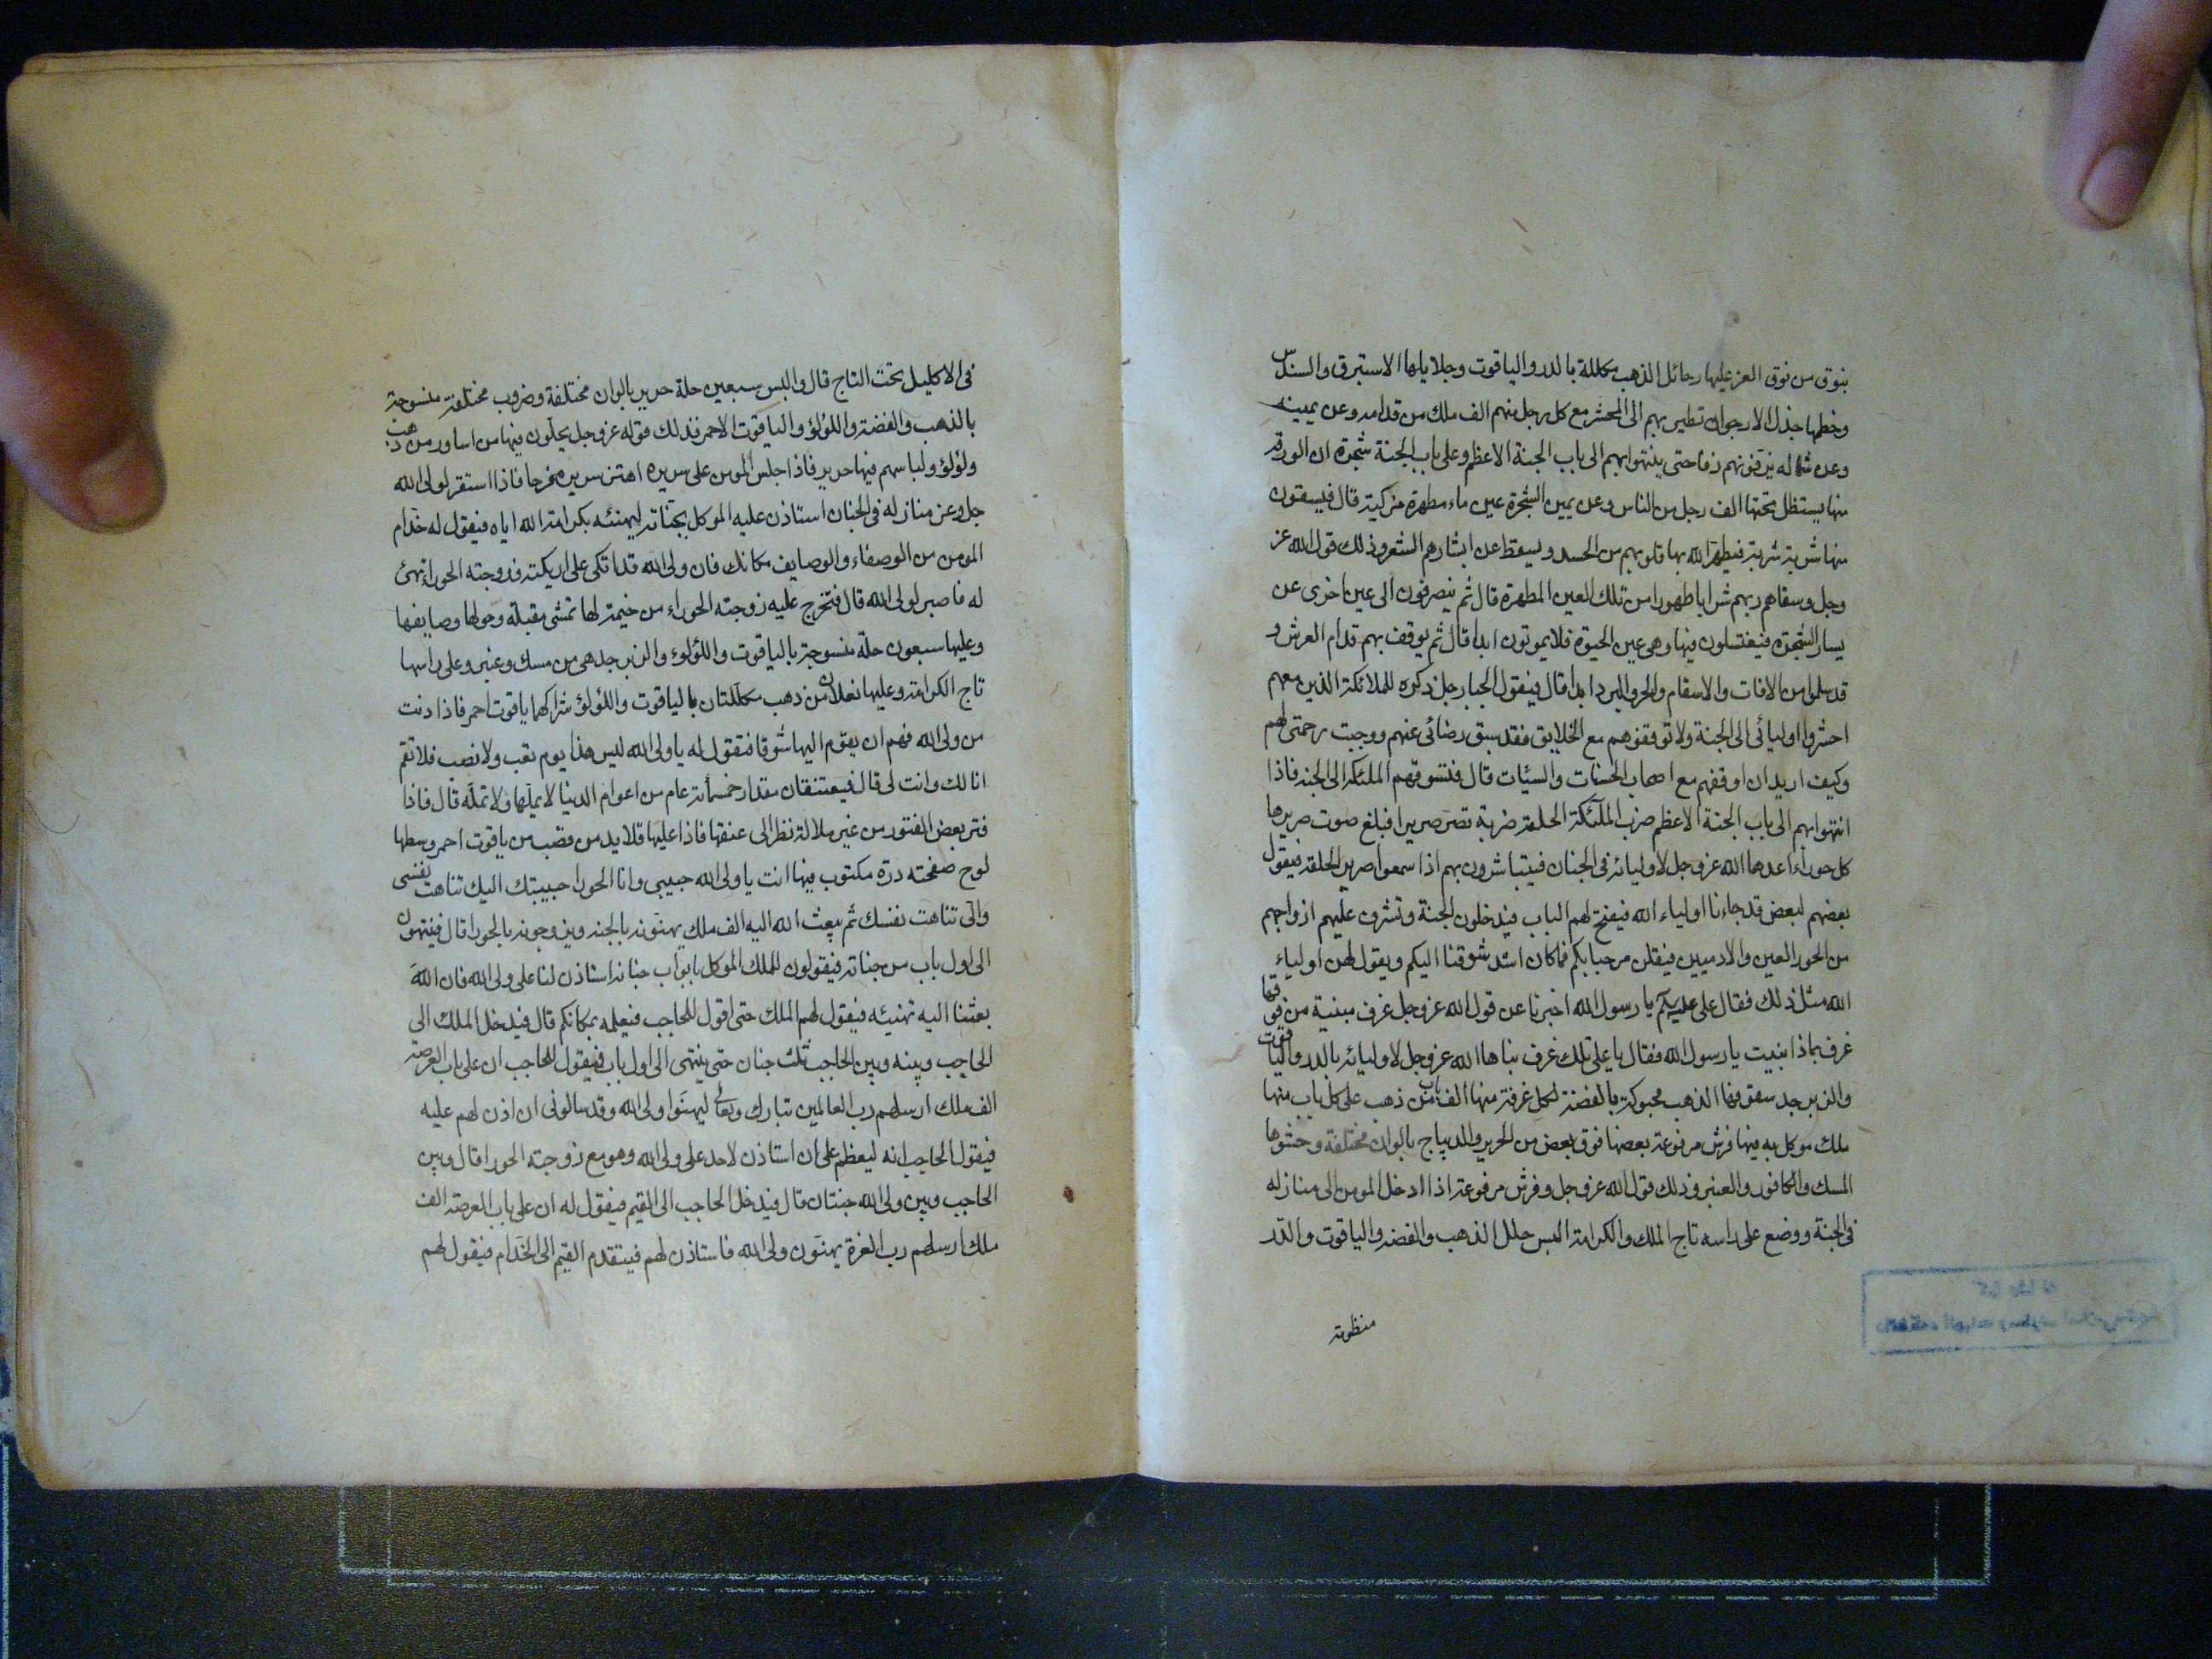 بنوق من نوق العز عليها رحائل الذهب مكللة بالدر والياقوت وجلايلها الاستبرق والسندس
وخطمها جذل الارجوان تطير بهم الى المحشر مع كل رجل منهم الف ملك من قدامه وعن يمينه
وعن شماله يزفونهم زفا حتى ينتهوا بهم الى باب الجنة الاعظم وعلى باب الجنة شجرة ان الورقة
منها يستظل تحتها الف رجل من الناس وعن يمين الشجرة عين ماء مطهرة مزكية قال فيسقون
منها شربة شربة فيطهر الله بها قلوبهم من الحسد ويسقط عن ابشارهم الشعر وذلك قول الله عز
وجل وسقاهم ربهم شرابا طهورا من تلك العين المطهرة قال ثم ينصرفون الى عين اخرى عن
يسار الشجرة فيغتسلون فيها وهى عين الحيوة فلا يموتون ابدا قال ثم يوقف بهم قدام العرش و
قد سلموا من الافات والاسقام والحر والبرد ابدا قال فيقول الجبار جل ذكره للملائكة الذين معهم
احشروا اوليائى الى الجنة ولا توقفوهم مع الخلايق فقد سبق رضائى عنهم ووجبت رحمتى لهم
وكيف اريد ان اوقفهم مع اصحاب الحسنات والسيئات قال فتسوقهم الملئكة الى الجنة فاذا
انتهوا بهم الى باب الجنة الاعظم ضرب الملئكة الحلقة ضربة تصر صريرا فبلغ صوت صريرها
كل حوراء اعدها الله عز وجل لاوليائه فى الجنان فيتباشرون بهم اذا سمعوا صرير الحلقة فيقول
بعضهم لبعض قد جاءنا اولياء الله فيفتح لهم الباب فيدخلون الجنة وتشرف عليهم ازواجهم
من الحور العين والادميين فيقلن مرحبا بكم فما كان اشد شوقنا اليكم ويقول لهن اولياء
الله مثل ذلك فقال على عليه السلم يا رسول الله اخبرنا عن قول الله عز وجل غرف مبنية من فوقها
غرف بماذا بنيت يا رسول الله فقال يا على تلك غرف بناها الله عز وجل لاوليائه بالدر والياقوت
والزبرجد سقوفها الذهب محبوكة بالفضة لكل غرفة منها الف باب من ذهب على كل باب منها
ملك موكل به فيها فرش مرفوعة بعضها فوق بعض من الحرير والديباج بالوان مختلفة وحشوها
المسك والكافور والعنبر وذلك قول الله عز وجل وفرش مرفوعة اذا ادخل المومن الى منازله
فى الجنة ووضع على راسه تاج الملك والكرامة البس حلل الذهب والفضة والياقوت والدر
منظومة
فى الاكليل تحت التاج قال والبس سبعين حلة حرير بالوان مختلفة وضروب مختلفة منسوجة
بالذهب والفضة واللؤلؤ والياقوت الاحمر فذلك قوله عز وجل يحلون فيها من اساور من ذهب
ولؤلؤ ولباسهم فيها حرير فاذا جلس المومن على سريره اهتز سريره فرحا فاذا استقر لولى الله
جل وعز منازله فى الجنان استاذن عليه الموكل بجناته ليهنئه بكرامة الله اياه فيقول له خدام
المومن من الوصفاء والوصايف مكانك فان ولى الله قد اتكى على اريكته وزوجته الحوراء تهئ
له فاصبر لولى الله قال فتخرج عليه زوجته الحوراء من خيمة لها تمشى مقبلة وحولها وصايفها
وعليها سبعون حلة منسوجة بالياقوت واللؤلوء والزبرجد هى من مسك وعنبر وعلى راسها
تاج الكرامة وعليها نعلان من ذهب مكللتان بالياقوت واللؤلؤ شراكهما ياقوت احمر فاذا دنت
من ولى الله فهم ان يقوم اليها شوقا فتقول له يا ولى الله ليس هذا يوم تعب ولا نصب فلا تقم
انا لك وانت لى قال فيعتنقان مقدار خمسمائة عام من اعوام الدنيا لا يملها ولا تمله قال فاذا
فتر بعض الفتور من غير ملالة نظر الى عنقها فاذا عليها قلايد من قصب من ياقوت احمر وسطها
لوح صفحته درة مكتوب فيها انت يا ولى الله حبيبى وانا الحورا حبيبتك اليك تناهت نفسى
والى تناهت نفسك ثم يبعث الله اليه الف ملك يهنونه بالجنة ويزوجونه بالحورا قال فينتهون
الى اول باب من جناته فيقولون للملك الموكل بابواب جنانه استاذن لنا على ولى الله فان الله
بعثنا اليه تهنيئه فيقول لهم الملك حتى اقول للحاجب فيعلمه بمكانكم قال فيدخل الملك الى
الحاجب وبينه وبين الحاجب ثلث جنان حتى ينتهى الى اول باب فيقول للحاجب ان على باب العرصة
الف ملك ارسلهم رب العالمين تبارك وتعالى ليهنوا ولى الله وقد سالونى ان اذن لهم عليه
فيقول الحاجب انه ليعظم على ان استاذن لاحد على ولى الله وهو مع زوجته الحورا قال وبين
الحاجب وبين ولى الله جنتان قال فيدخل الحاجب الى القيم فيقول له ان على باب العرصة الف
ملك ارسلهم رب العزة يهنون ولى الله فاستاذن لهم فيتقدم القيم الى الخدام فيقول لهم